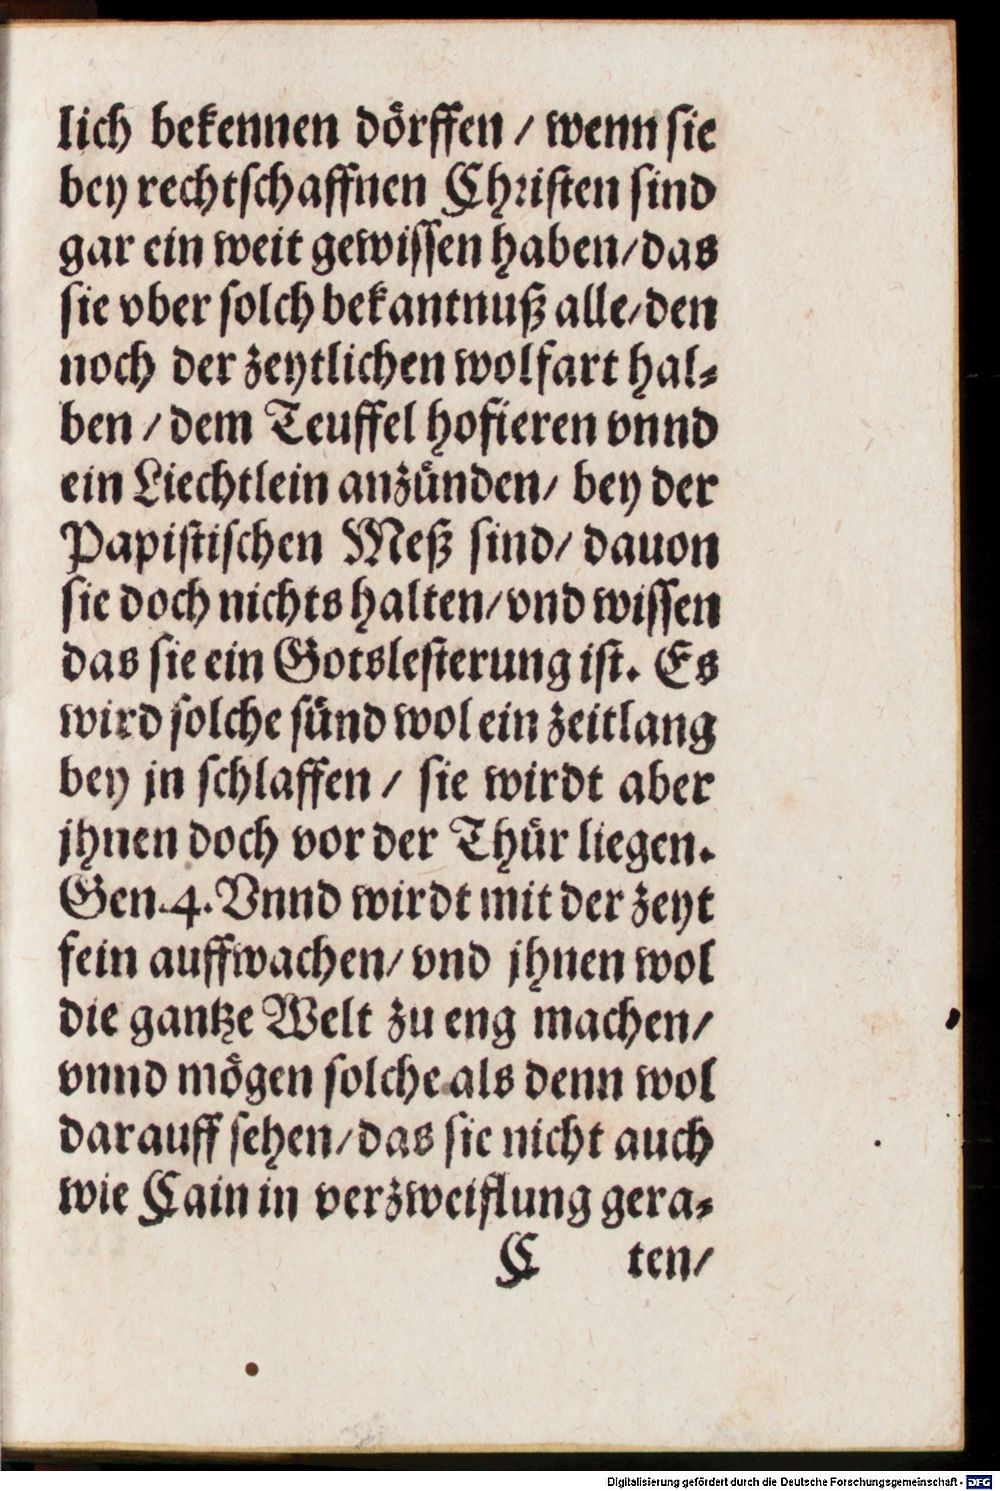 lich bekennen dörffen / wenn sie
bey rechtschaffnen Christen sind
gar ein weit gewissen haben / das
sie vber solch bekantnuß alle / den
noch der zeytlichen wolfart hal⸗
ben / dem Teuffel hofieren vnnd
ein Liechtlein anzünden / bey der
Papistischen Meß sind / dauon
sie doch nichts halten / vnd wissen
das sie ein Gotslesterung ist. Es
wird solche sünd wol ein zeitlang
bey jn schlaffen / sie wirdt aber
jhnen doch vor der Thür liegen.
Gen. 4. Vnnd wirdt mit der zeyt
fein auffwachen / vnd jhnen wol
die gantze Welt zu eng machen /
vnnd mögen solche als denn wol
darauff sehen / das sie nicht auch
wie Cain in verzweiflung gera⸗
C ten /
Digitalisierung gefördert durch die Deutsche Forschungsgemeinschaft - DFG